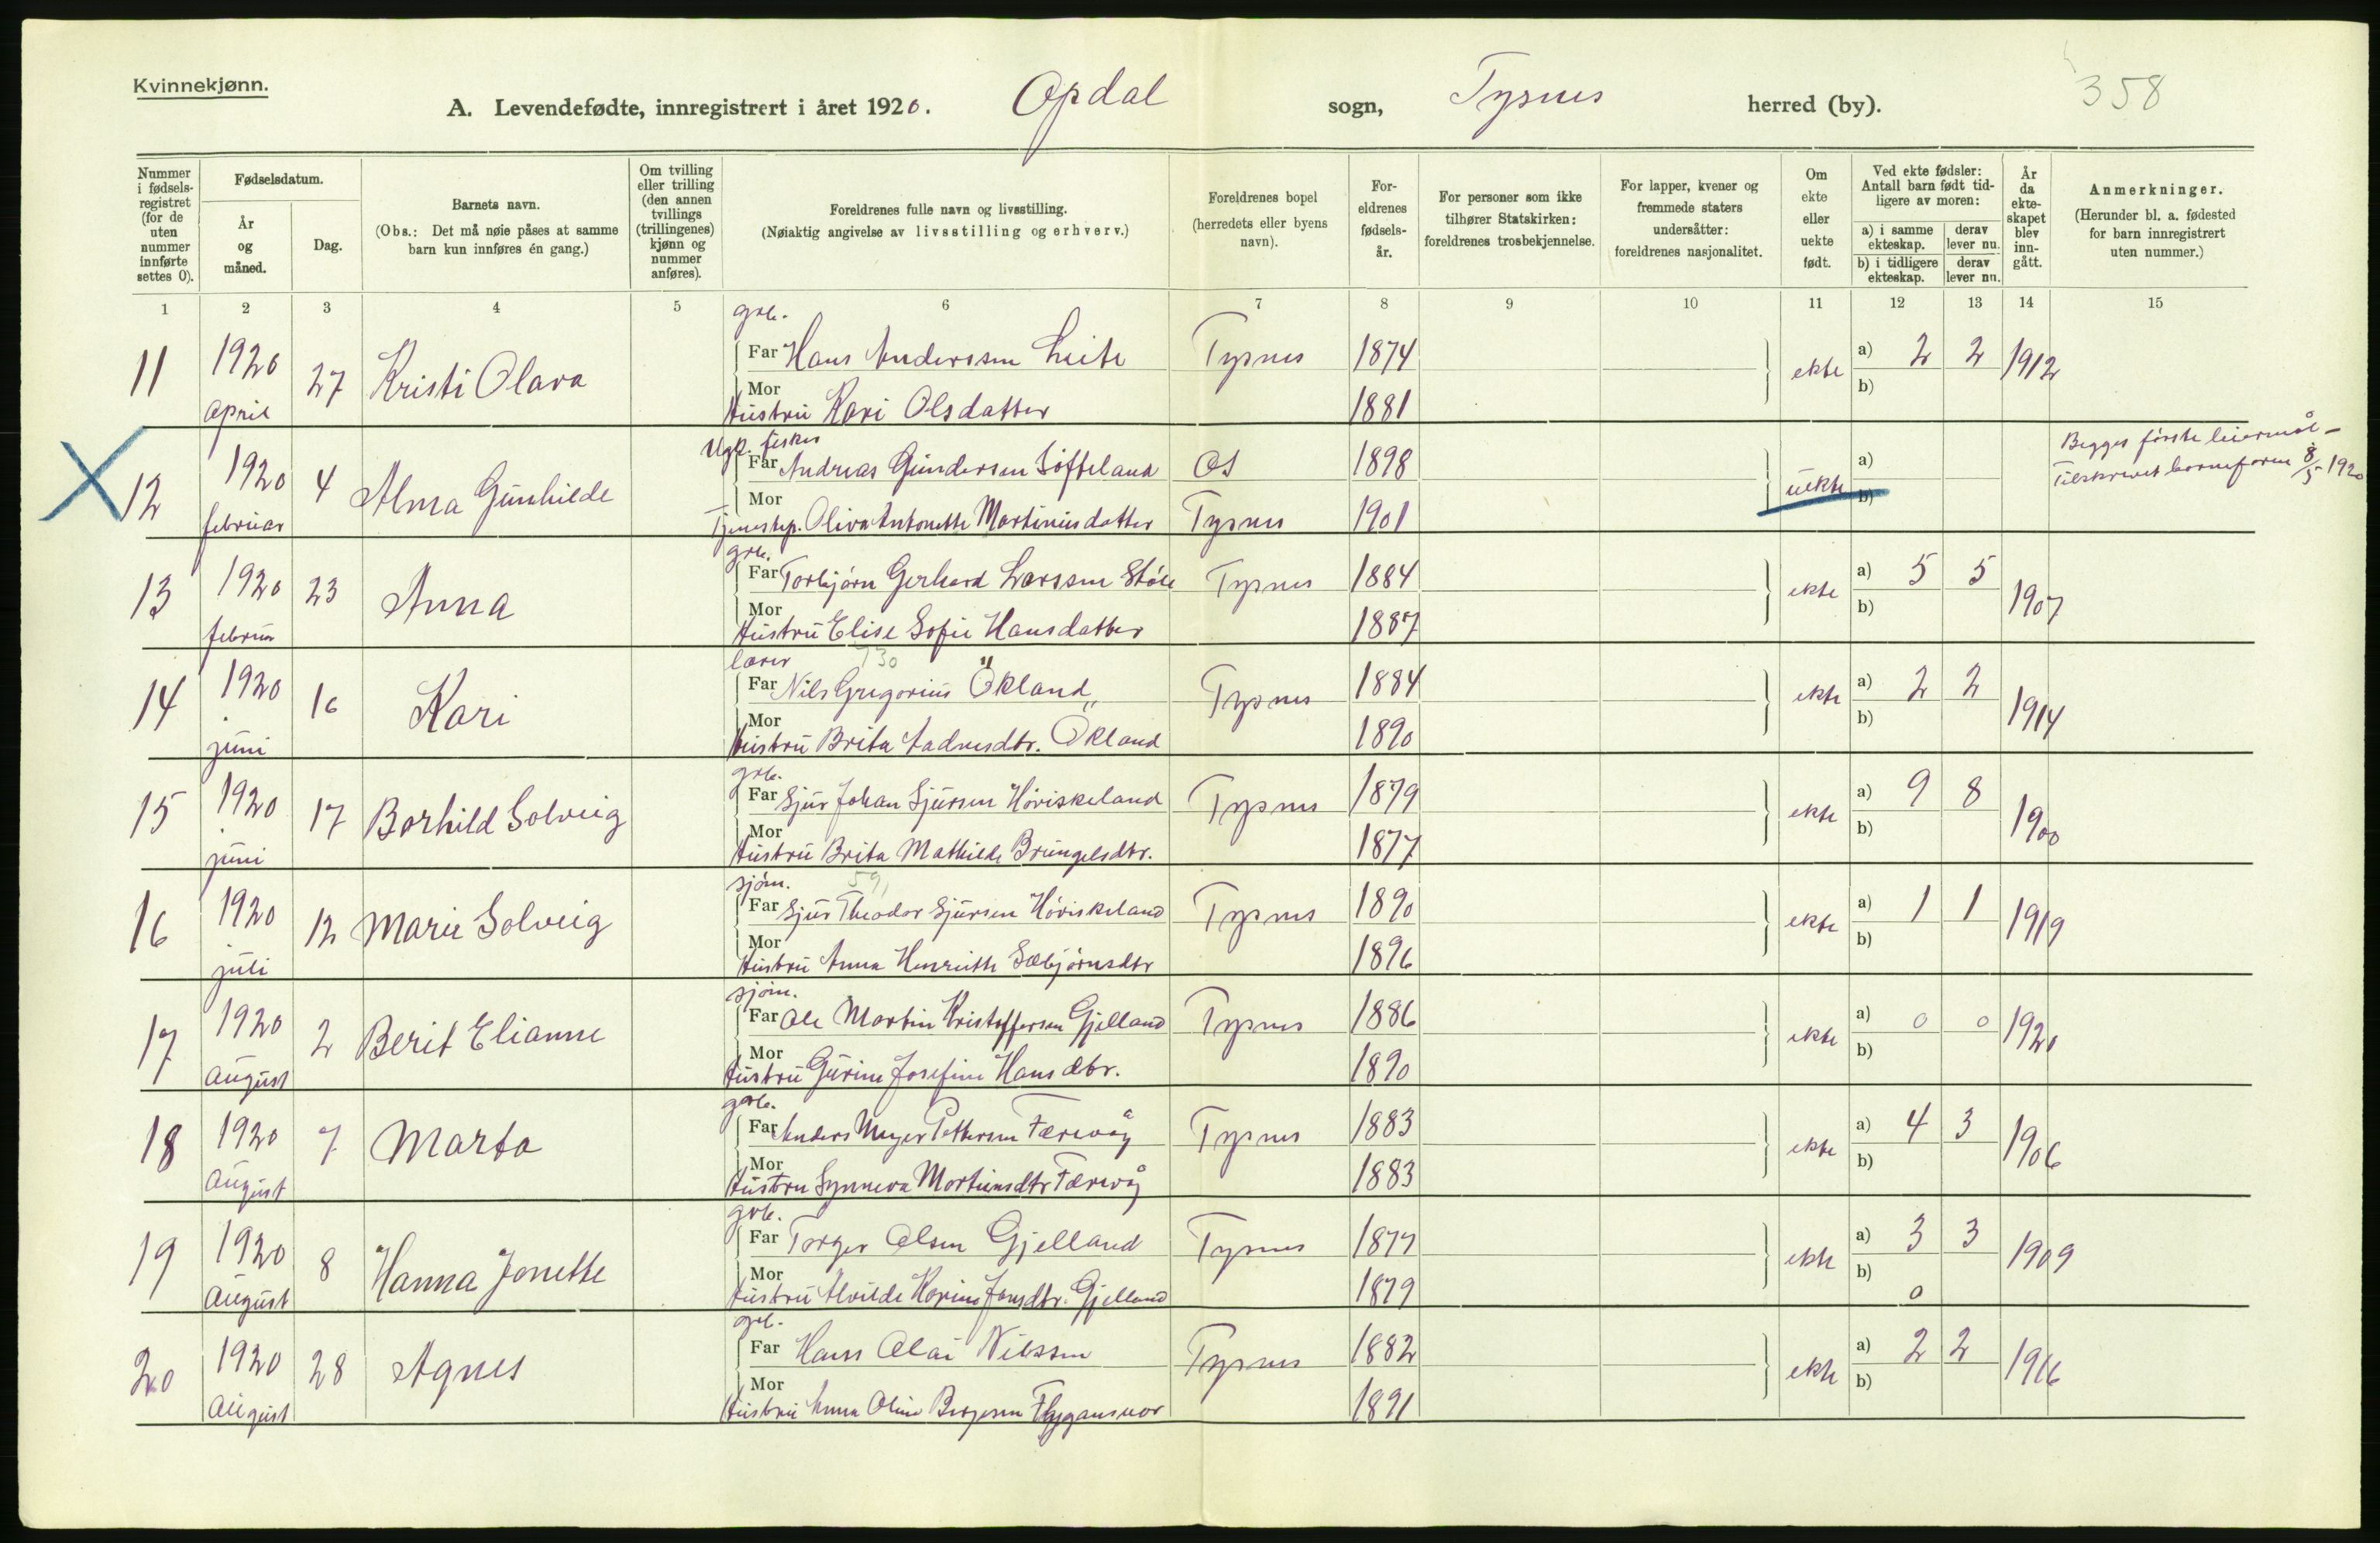 Kvinnekjønn.
A. Levendefødte, innregistrert i året 1920. Opdal sogn, Tysnes herred (by). 358
Nummer i fødsels-registret (for de uten nummer innførte settes 0).
Fødselsdatum.
År og måned.
Dag.
Barnets navn.
(Obs.: Det må nøie påses at samme barn kun innføres én gang.)
Om tvilling eller trilling (den annen tvillings (trillingenes) kjønn og nummer anføres).
Foreldrenes fulle navn og livsstilling.
(Nøiaktig angivelse av livsstilling og erhverv.)
Foreldrenes bopel
(herredets eller byens navn).
For-eldrenes fødsels-år.
For personer som ikke tilhører Statskirken: foreldrenes trosbekjennelse.
For lapper, kvener og fremmede staters undersåtter: foreldrenes nasjonalitet.
Om ekte eller uekte født.
Ved ekte fødsler: Antall barn født tid-ligere av moren:
a) i samme ekteskap. derav lever nu.
b) i tidligere ekteskap. derav lever nu.
År da ekte-skapet blev inn-gått.
Anmerkninger.
(Herunder bl. a. fødested for barn innregistrert uten nummer.)
1 2 3 4 5 6 7 8 9 10 11 12 13 14 15
grb.
11 1920 april 27 Kristi Olava Far Hans Anderssen Leite Tysnes 1874 ekte a) 2 2 1912
Mor Hustru Kari Olsdatter 1881 b)
Ugk. fisker
12 1920 februar 4 Alma Gunhilde Far Andreas Gundersen Søfteland Os 1898 uekte a) Begges første leiermål -
Mor Tjenestep. Oliva Antonette Martinusdatter Tysnes 1901 b) Tilskrevet barneforen 8/5 1920
grb.
13 1920 februar 23 Anna Far Torbjørn Gerhard Larssen Støle Tysnes 1884 ekte a) 5 5 1907
Mor Hustru Elise Sofie Hansdatter 1887 b)
lærer 730
14 1920 juni 16 Kari Far Nils Gregorius Økland Tysnes 1884 ekte a) 2 2 1914
Mor Hustru Brita Aadnesdtr. Økland 1890 b)
grb.
15 1920 juni 17 Borhild Solveig Far Sjur Johan Sjursen Høviskeland Tysnes 1879 ekte a) 9 8 1900
Mor Hustru Brita Mathilde Brungelsdtr. 1877 b)
sjøm. 591
16 1920 juli 12 Marie Solveig Far Sjur Theodor Sjursen Høviskeland Tysnes 1890 ekte a) 1 1 1919
Mor Hustru Anna Henriette Sæbjørnsdtr 1896 b)
sjøm.
17 1920 august 2 Berit Elianne Far Ole Martin Kristoffersen Gjelland Tysnes 1886 ekte a) 0 0 1920
Mor Hustru Gurine Josefine Hansdtr. 1890 b)
grb.
18 1920 august 7 Marta Far Anders Meyer Pettersen Færevåg Tysnes 1883 ekte a) 4 3 1906
Mor Hustru Synneva Martinsdtr Færevåg 1883 b)
grb.
19 1920 august 8 Hanna Jonette Far Torger Olsen Gjelland Tysnes 1877 ekte a) 3 3 1909
Mor Hustru Alvilde Karine Jansdtr. Gjelland 1879 b) 0
grb.
20 1920 august 28 Agnes Far Hans Olai Nilssen Tysnes 1882 ekte a) 2 2 1916
Mor Hustru Anna Oline Bergesen Flygansvær 1891 b)